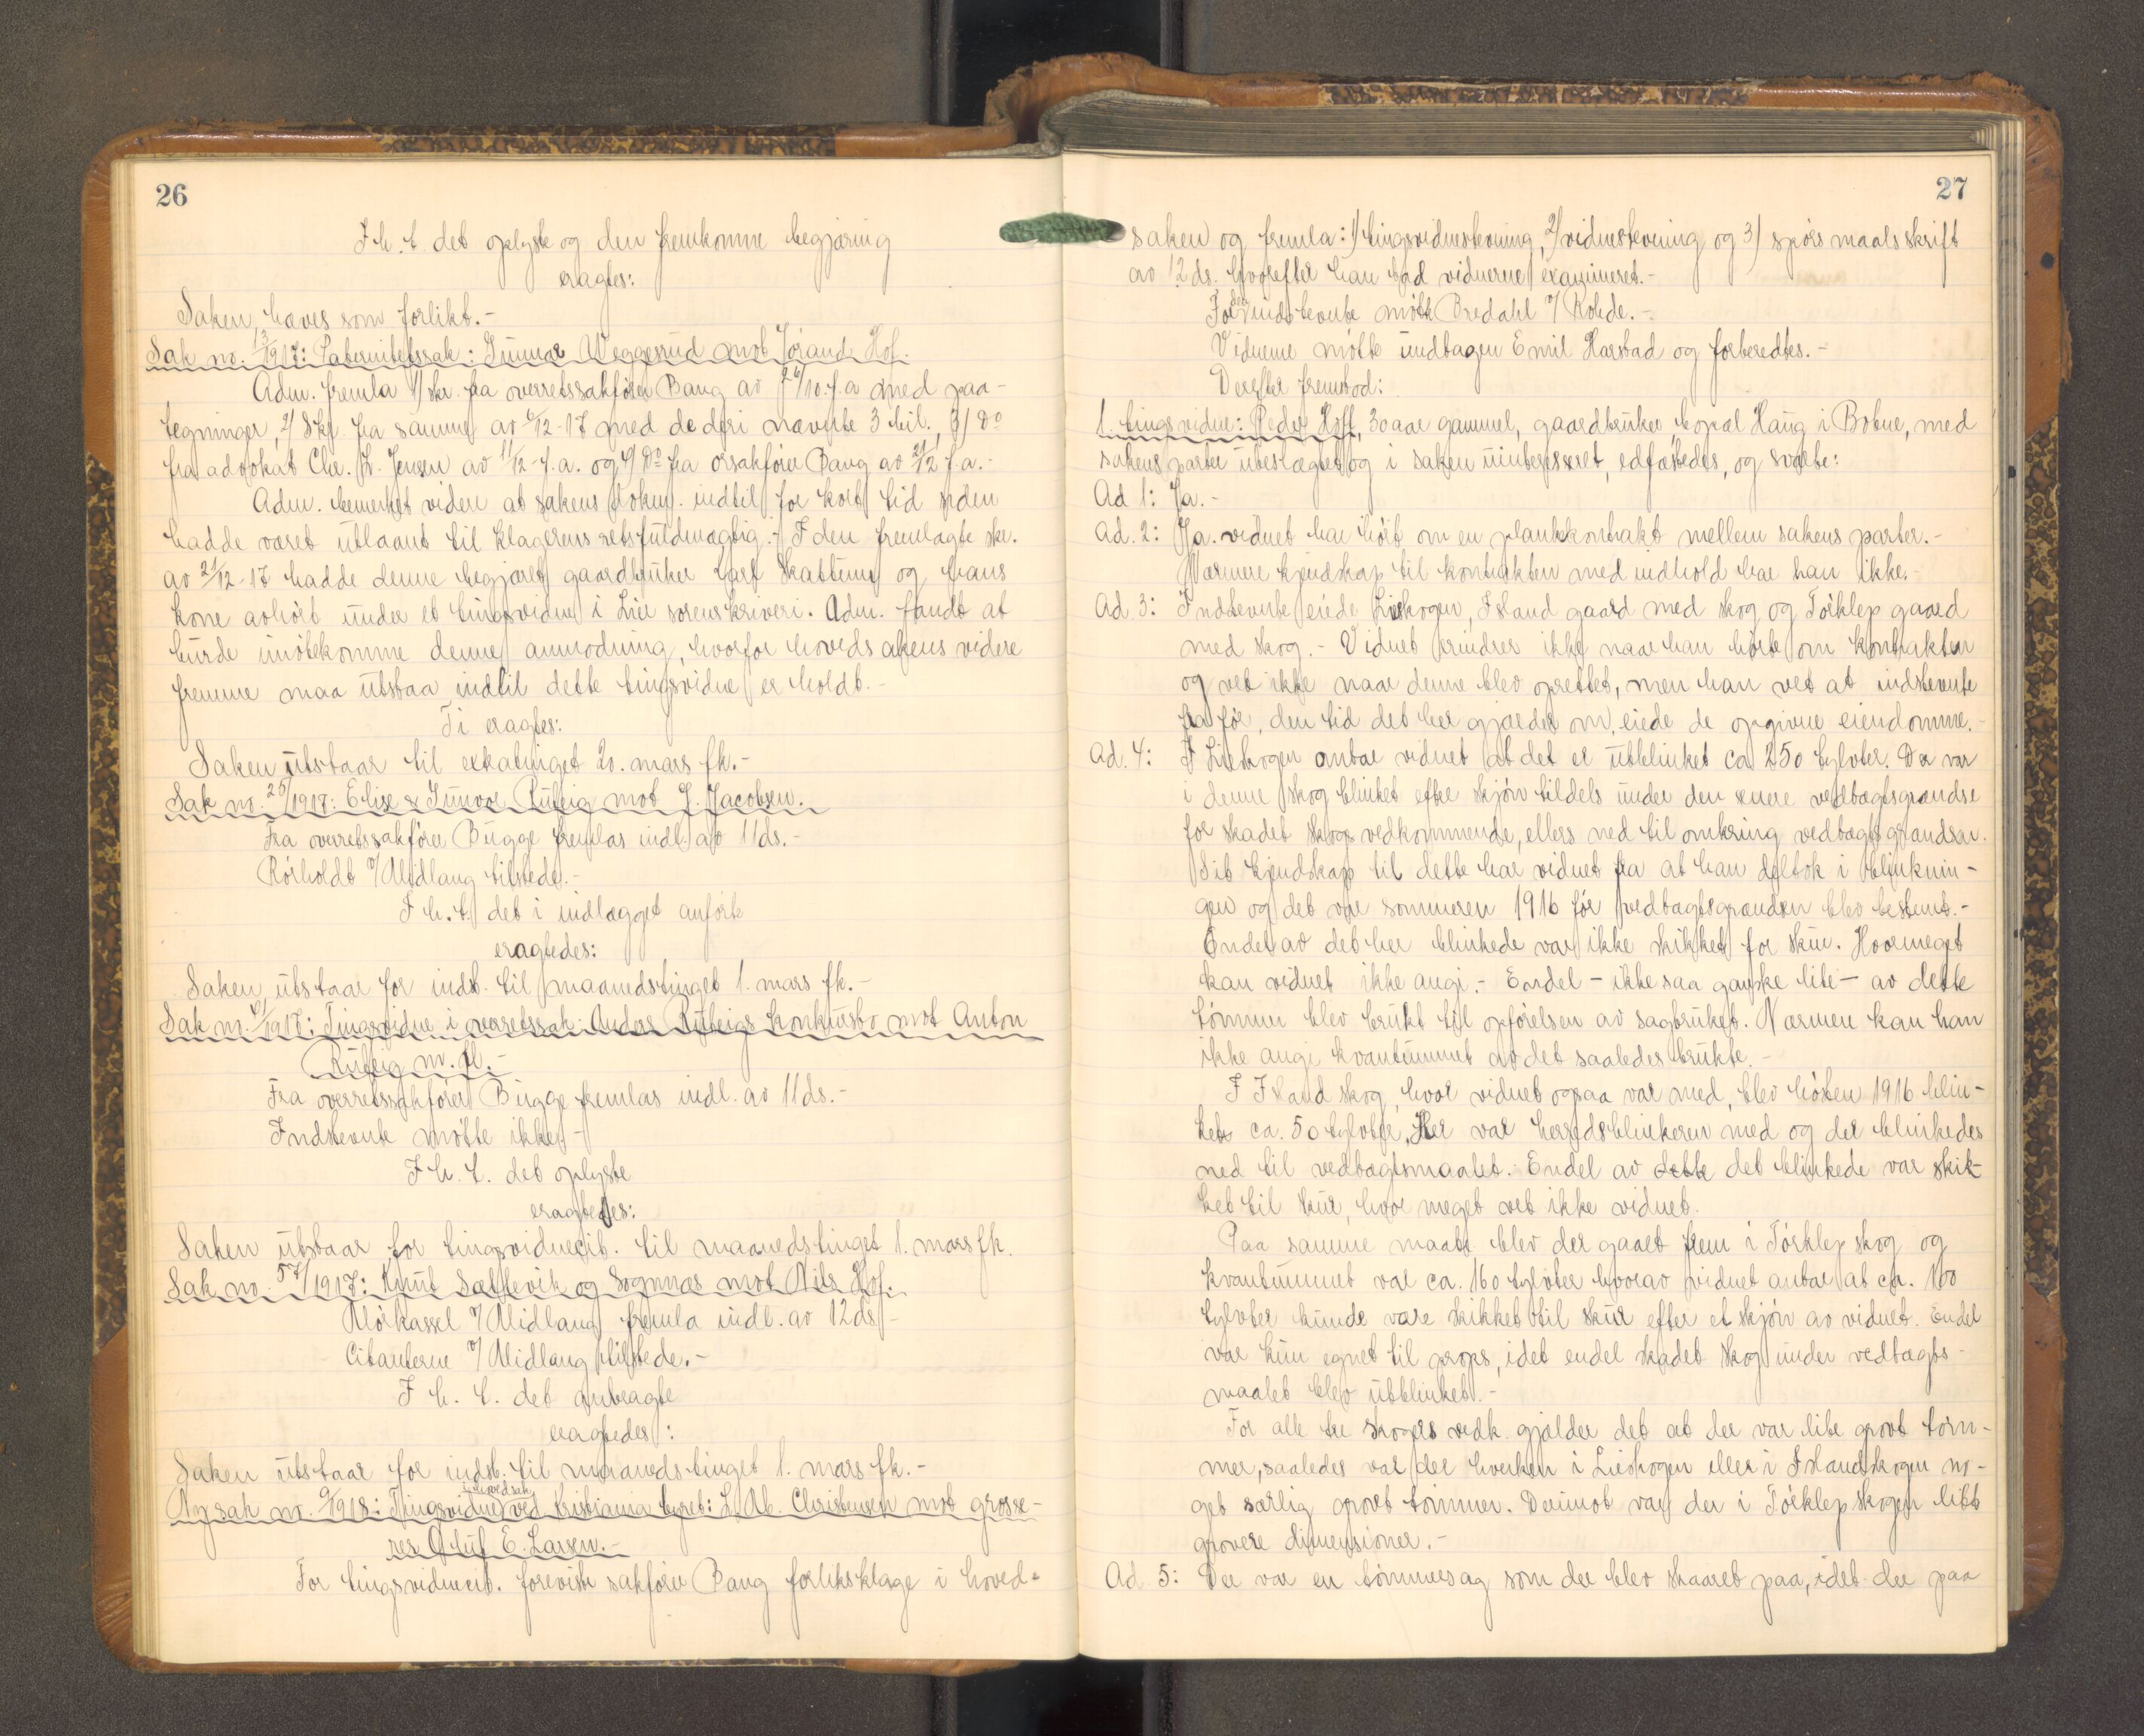 26
I h. t. det oplyste og den fremkomne begjæring
eragtes:
Saken hæves som forlikt.-
Sak no. 13/1917: Paternitetssak: Gunnar Weggesrud mot Jørand Hof.
Adm. fremla 1/ skr. fra overretssakfører Bang av 26/10. f.a med paa-
tegninger, 2/ Skr. fra samme av 6/12-17 med de deri nævnte 3 bil. 3/ do
fra advokat Chr. L. Jensen av 11/12-f.a. og 4/ Do fra orsakfører Bang av 21/12 f.a.-
Adm. bemerket videre at sakens dokum. indtil for kort tid siden
hadde været utlaant til klagerens retsfuldmægtig.- I den fremlagte skr.
av 21/12-17 hadde denne begjæret gaardbruker Karl Skattum og hans
kone avhørt under et tingsvidne i Lier sorenskriveri. Adm. fandt at
burde imøtekomme denne anmodning, hvorfor hovedsakens videre
fremme maa utstaa indtil dette tingsvidne er holdt.-
Ti eragtes:
Saken utstaar til extratinget 20. mars fk.-
Sak no. 26/1917: Elise & Gunvor Rubeig mot J. Jacobsen.
Fra overretssakfører Bugge fremlas indl. av 11 ds.-
Rørholdt o/ Midlang tilstede.-
I h. t. det i indlægget anførte
eragtedes:
Saken utstaar for indst. til maanedstinget 1. mars fk.-
Sak no. 41/1917: Tingsvidne i overretssak Anders Rubeigs konkursbo mot Anton
Rubeig m. fl.-
Fra overretssakfører Bugge fremlas indl. av 11 ds.-
Indstevnte møtte ikke.-
I h. t. det oplyste
eragtedes:
Saken utstaar for tingsvidnecit. til maanedstinget 1. mars fk.
Sak no. 57/1917: Knut Sætlevik og Sognnæs mot Nils Hof.
Mørkassel o/ Midlang fremla indl. av 12 ds.-
Citanterne o/ Midlang tilstede.-
I h. t. det anbragte
eragtedes:
Saken utstaar for indst. til maanedstinget 1. mars fk.-
i hovedsak
Ny sak no. 9/1918: Tingsvidne ved Kristiania byret: L. M. Christensen mot grosse-
rer Oluf E. Larsen.-
For tingsvidnecit. foreviste sakfører Bang forliksklage i hoved-
27
saken og fremla: 1/ tingsvidnestevning, 2/ vidnestevning og 3/ spørsmaalsskrift
av 12 ds. hvorefter han bad vidnerne examineret.-
For den indstevnte møtte Bredahl o/ Rohde.-
Vidnerne møtte undtagen Emil Harstad og forberedtes.-
Derefter fremstod:
1. tingsvidne: Peder Hoff, 30 aar gammel, gaardbruker bopæl Haug i Botne, med
sakens parter ubeslægtet og i saken uinteresseret, edfæstedes, og svarte:
Ad 1: Ja.-
Ad. 2: Ja. vidnet har hørt om en plankkontrakt mellem sakens parter.-
Nærmere kjendskap til kontrakten med indhold har han ikke.-
Ad 3: Indstevnte eiede Lieskogen, Island gaard med skog og Tørklep gaard
med skog.- Vidnet erindrer ikke naar han hørte om kontrakten
og vet ikke naar denne blev oprettet, men han vet at indstevnte
fra før, den tid det her gjælder om, eiede de opgivne eiendomme.-
Ad. 4: I Lieskogen antar vidnet at det er utblinket ca 250 tylvter. Der var
i denne skog blinket efter skjøn tildels under den senere vedtægtsgrændse
for skadet skogs vedkommende, ellers ned til omkring vedtægtsgrændsen.
Sit kjendskap til dette har vidnet fra at han deltok i blinknin-
gen og det var sommeren 1916 før vedtagtsgrændsen blev bestemt.-
Endel av det her blinkede var ikke skikket for skur. Hvormeget
kan vidnet ikke angi.- Endel - ikke saa ganske lite - av dette
tømmer blev brukt til opførelsen av sagbruket. Nærmere kan han
ikke angi kvantummet av det saaledes brukte.-
I Island skog, hvor vidnet ogsaa var med, blev høsten 1916 blin-
ket ca. 50 tylvter. Her var herredsblinkeren med og der blinkedes
ned til vedtægtsmaalet. Endel av dette det blinkede var skik-
ket til skur, hvor meget vet ikke vidnet.
Paa samme maate blev der gaaet frem i Tørklep skog og
kvantummet var ca. 160 tylvter hvorav vidnet antar at ca. 100
tylvter kunde være skikket til skur efter et skjøn av vidnet. Endel
var kun egnet til props, idet endel skadet skog under vedtægts-
maalet blev utblinket.-
For alle tre skogers vedk. gjælder det at der var lite grovt tøm-
mer, saaledes var der hverken i Lieskogen eller i Islandskogen no-
get særlig grovt tømmer. Derimot var der i Tørklepskogen litt
grovere dimensioner.-
Ad 5: Der var en tømmersag som der blev skaaret paa, idet der paa